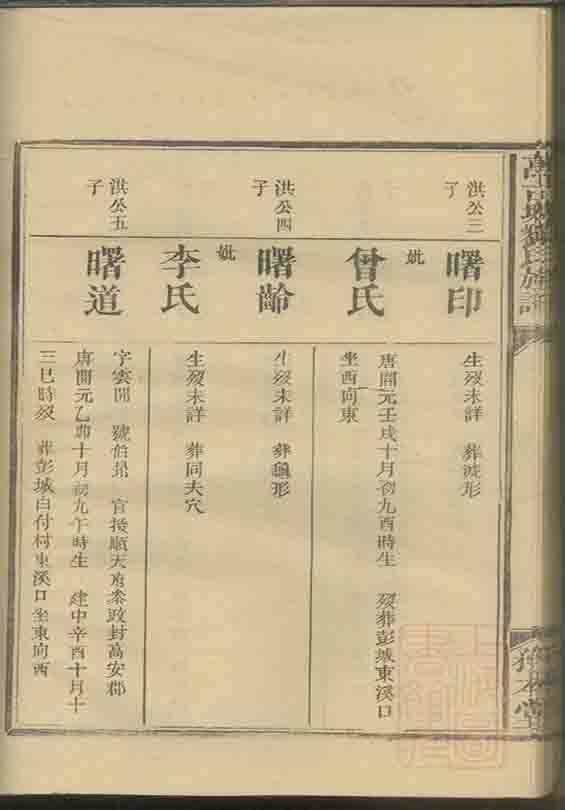 洪公三
子
曙印
生歿未詳 葬波形
妣
曾氏
唐開元壬戌十月初九酉時生 歿葬彭城東溪口
坐酉向東
洪公四
子
曙齡
生歿未詳 葬龜形
妣
李氏
生歿未詳 葬同夫穴
洪公五
子
曙道
字雲開 號伯昂 官授順天府叅政封高安郡
唐開元乙卯十月初九午時生 建中辛酉十月十
三巳時歿 葬彭城白付村東溪口坐東向西
氏族譜
堂